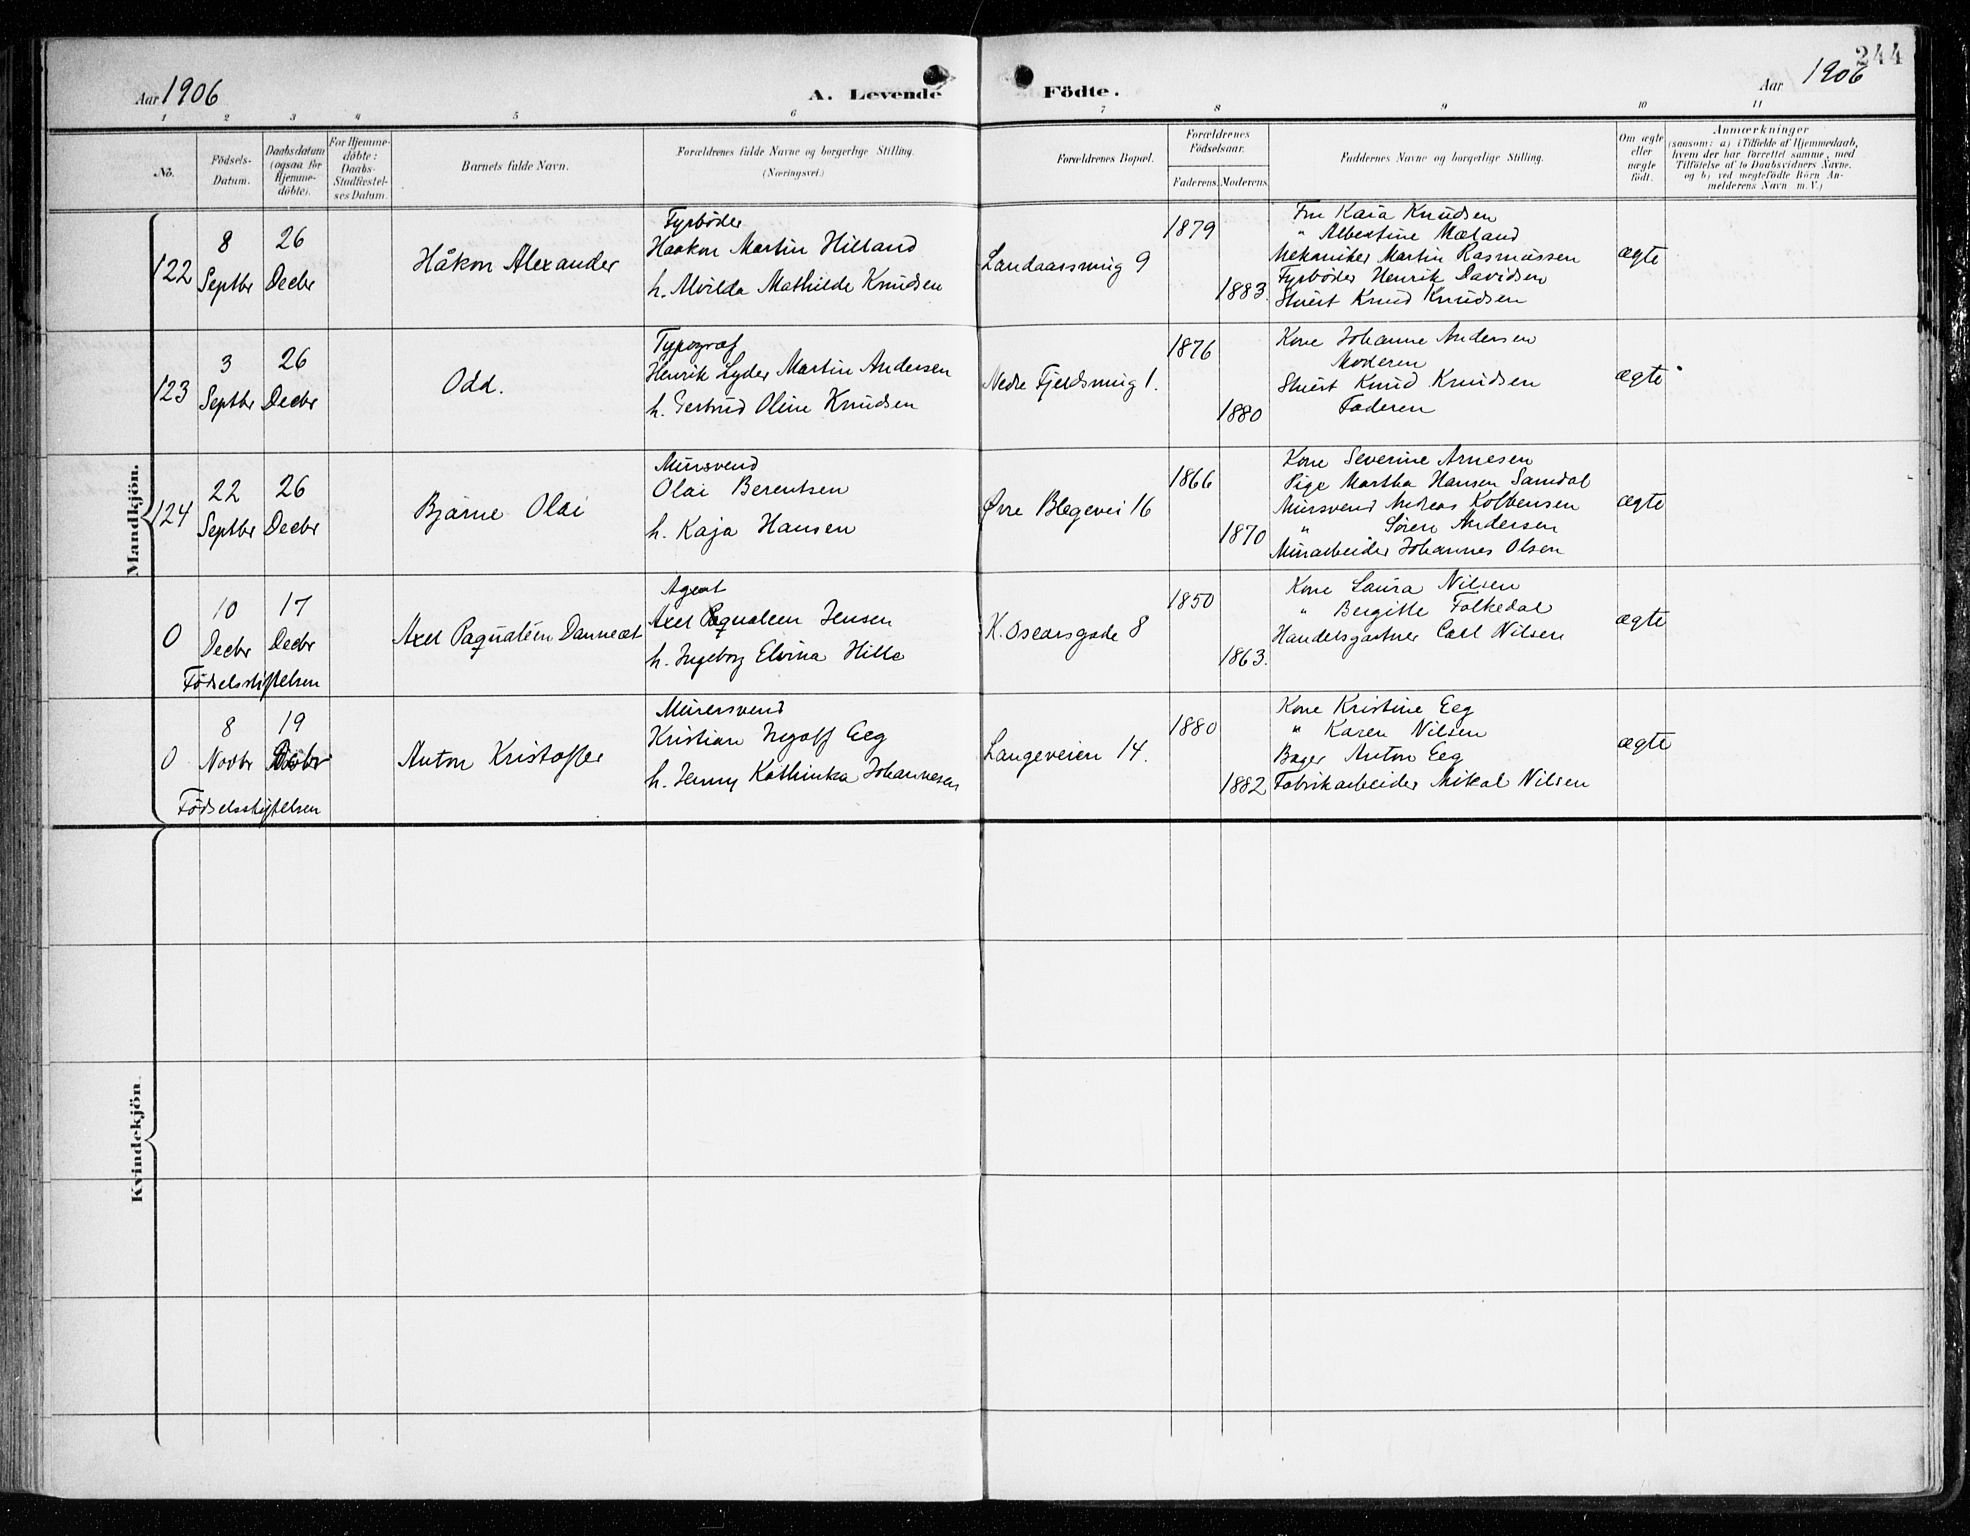 244
Aar 1906
A. Levende Födte.
Aar 1906
1 2 3 4 5 6 7 8 9 10 11
No.
Födsels-Datum.
Daabsdatum (ogsaa for Hjemme-döbte).
For Hjemme-döbte: Daabs-Stadfæstel-ses Datum.
Barnets fulde Navn.
Forældrenes fulde Navne og borgerlige Stilling.
(Næringsvei.)
Forældrenes Bopæl.
Forældrenes Födselsaar.
Faderens. Moderens.
Faddernes Navne og borgerlige Stilling.
Om ægte eller uægte födt.
Anmærkninger
(saasom: a) i Tilfælde af Hjemmedaab,
hvem der har forrettet samme, med
Tilföielse af to Daabsvidners Navne,
og b) ved uægtefödte Börn An-
melderens Navn m. V.)
Mandkjön.
122
8 Septbr
26 Decbr
Håkon Alexander
Fyrbøder
Haakon Martin Hilland
h. Alvilda Mathilde Knudsen
Landaassmug 9
1879
1883.
Fru Kaia Knudsen
" Albertine Mæland
Mekaniker Martin Rasmussen
Fyrbøder Henrik Davidsen
Stuert Knud Knudsen
ægte
123
3 Septbr
26 Decbr
Odd.
Typograf
Henrik Lyder Martin Andersen
h. Gertrud Oline Knudsen
Nedre Fjeldsmug 1.
1876
1880
Kone Johanne Andersen
Moderen
Stuert Knud Knudsen
Faderen
ægte
124
22 Septbr
26 Decbr
Bjarne Olai
Mursvend
Olai Berentsen
h. Kaja Hansen
Øvre Blegevei 16
1866
1870
Kone Severine Arnesen
Pige Martha Hansen Samdal
Mursvend Andreas Kolbensen
" Søren Andersen
Murarbeider Johannes Olsen
ægte
0
10 Decbr
17 Decbr
Fødselsstiftelsen
Axel Paqualéen
Agent
Axel Paqualeen Jensen
h. Ingeborg Elvina Hille
K. Oscarsgade 8
1850
1863.
Kone Laura Nilsen
" Bergitte Folkedal
Handelsgartner Carl Nilsen
ægte
0
8 Novbr
19
Fødselsstiftelsen
Anton Kristoffer
Murersvend
Kristian Ingolf Eeg
h. Jenny Kathinka Johannesen
Langeveien 14.
1880
1882
Kone Kristine Eeg
" Karen Nilsen
Bager Anton Eeg
Fabrikarbeider Mikal Nilsen
ægte
Kvindekjön.